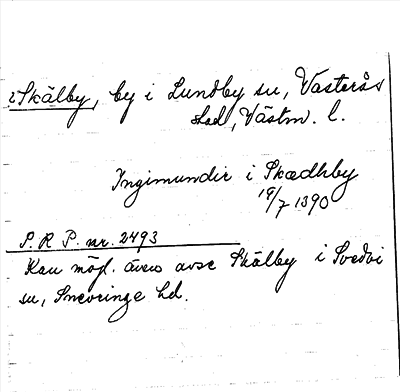 2Skälby, by i Lundby sn, Västerås
stad, Västm. l.
Ingimundir i Skædhby
19/7 1390
S. R. P. nr. 2493
Kan möjl. även avse Skälby i Svedvi
sn, Snevringe hd.